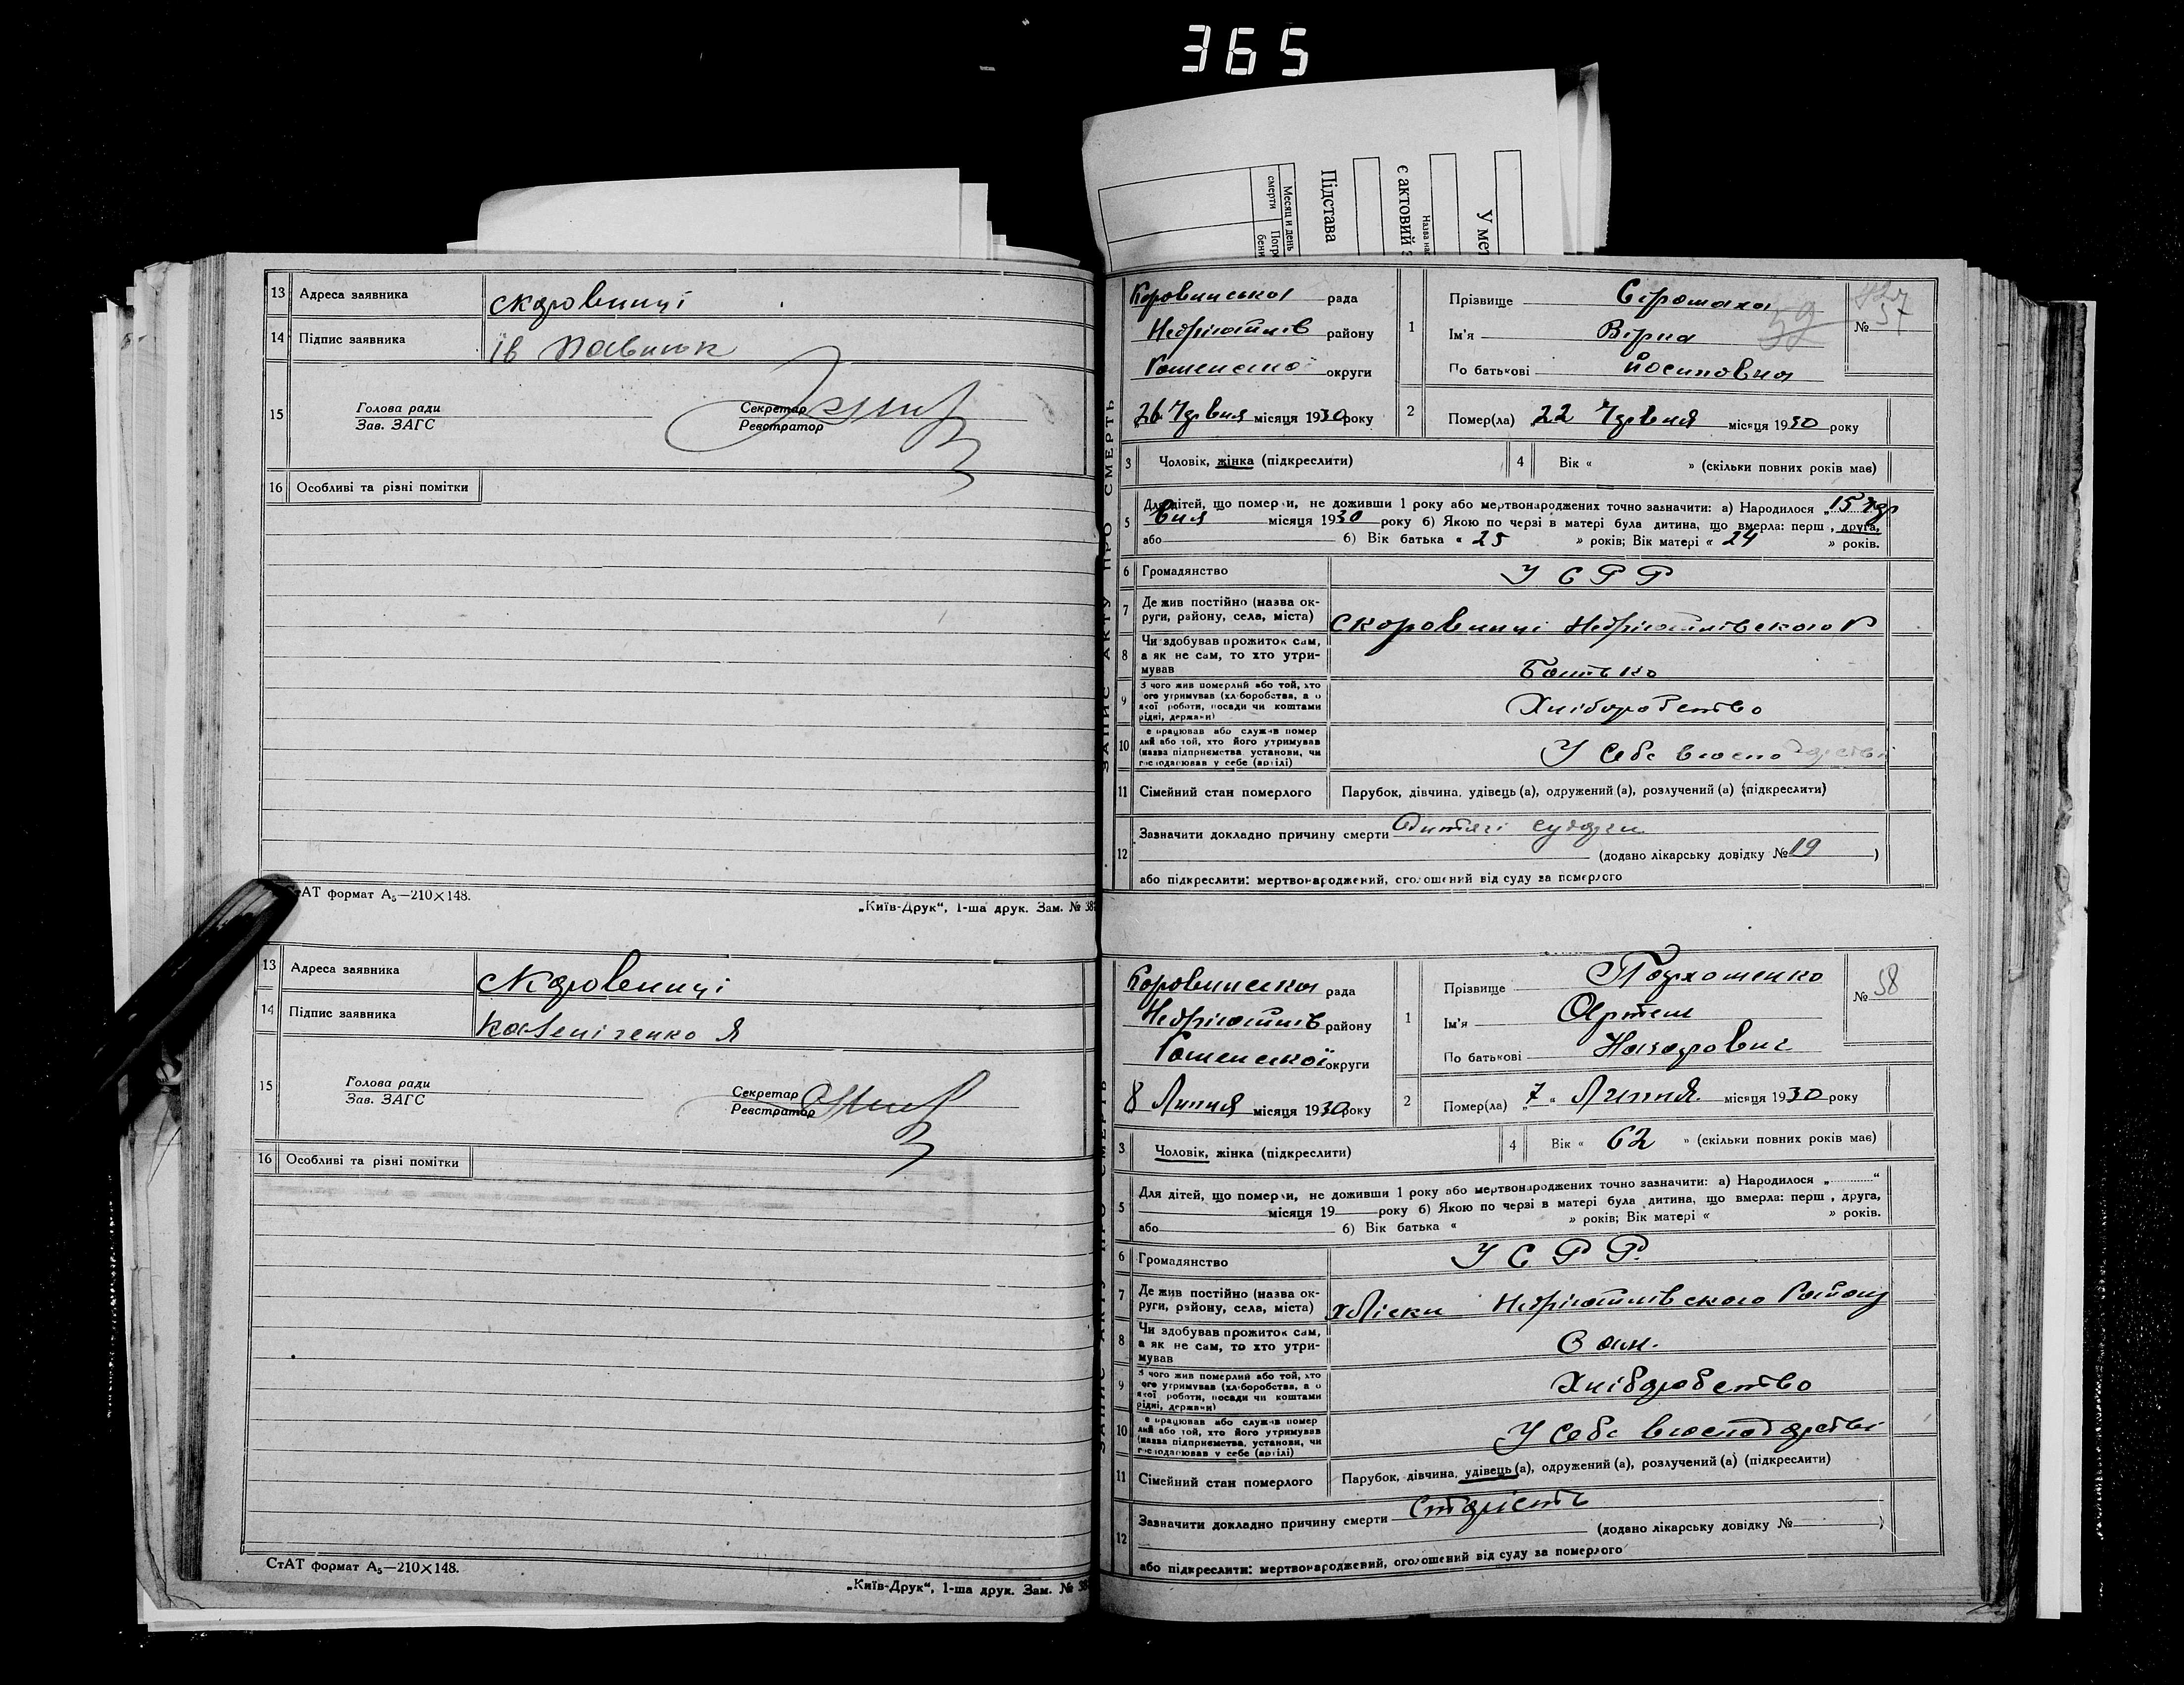 365
Месяц и день смерти
Погр бени
Підстава
є актовий з
Назва нас
У мет
13 Адреса заявника
14 Підпис заявника
15 Голова ради Секретар
Зав. ЗАГС Реєстратор
16 Особливі та різні помітки
СтАТ формат А₅—210×148.
„Київ-Друк“, 1-ша друк. Зам. № 38
13 Адреса заявника
14 Підпис заявника
15 Голова ради Секретар
Зав. ЗАГС Реєстратор
16 Особливі та різні помітки
СтАТ формат А₅—210×148.
„Київ-Друк“, 1-ша друк. Зам. № 38
ЗАПИС АКТУ ПРО СМЕРТЬ
Коровинська рада
району
округи
26 Червня місяця 1930 року
1 Прізвище Сіромаха
Ім'я Вірка
По батькові Йосиповна
№ 57
2 Помер(ла) 22 Червня місяця 1930 року
3 Чоловік, жінка (підкреслити) 4 Вік « » (скільки повних років має)
5 Для дітей, що померли, не доживши 1 року або мертвонароджених точно зазначити: а) Народилося „15 чер
вня місяця 1930 року б) Якою по черзі в матері була дитина, що вмерла: перш , друга,
або б) Вік батька « 25 » років; Вік матері « 24 » років.
6 Громадянство У С Р Р
7 Де жив постійно (назва округи, району, села, міста)
8 Чи здобував прожиток сам, а як не сам, то хто утримував Батько
9 З чого жив померлий або той, хто його утримував (хліборобства, а о якої роботи, посади чи коштами рідні, держави) Хліборобство
10 е працював або служив помер лий або той, хто його утримував (назва підприємства установи, чи господарював у себе (артілі) У себе в господарстві
11 Сімейний стан померлого Парубок, дівчина, удівець (а), одружений (а), розлучений (а) (підкреслити)
12 Зазначити докладно причину смерти
(додано лікарську довідку № 19 )
або підкреслити: мертвонароджений, оголошений від суду за померлого
ЗАПИС АКТУ ПРО СМЕРТЬ
Коровинська рада
району
округи
8 Липня місяця 1930 року
1 Прізвище Пархоменко
Ім'я Артем
По батькові Назарович
№ 58
2 Помер(ла) „7“ Липня місяця 1930 року
3 Чоловік, жінка (підкреслити) 4 Вік « 62 » (скільки повних років має)
5 Для дітей, що померли, не доживши 1 року або мертвонароджених точно зазначити: а) Народилося „ “
місяця 19 року б) Якою по черзі в матері була дитина, що вмерла: перш , друга,
або б) Вік батька « » років; Вік матері « » років.
6 Громадянство У С Р Р.
7 Де жив постійно (назва округи, району, села, міста)
8 Чи здобував прожиток сам, а як не сам, то хто утримував Сам.
9 З чого жив померлий або той, хто його утримував (хліборобства, а о якої роботи, посади чи коштами рідні, держави) Хліборобство
10 е працював або служив помер лий або той, хто його утримував (назва підприємства установи, чи господарював у себе (артілі) У себе в господарстві
11 Сімейний стан померлого Парубок, дівчина, удівець (а), одружений (а), розлучений (а) (підкреслити)
12 Зазначити докладно причину смерти Старість
(додано лікарську довідку № )
або підкреслити: мертвонароджений, оголошений від суду за померлого